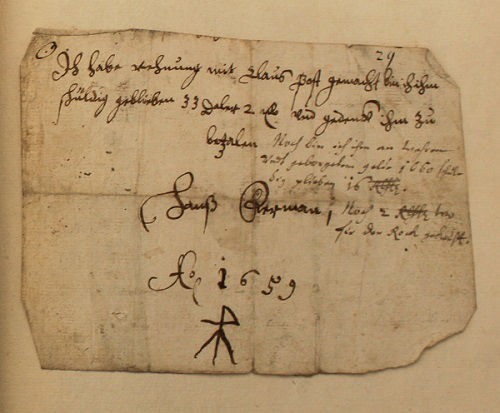 29
Ich habe rehnung mit Claus Post gemacht bin ich ihm
schuldig geblieben 33 Daler 2 und gedenck ihm zu
betzalen Noch bin ich ihm an
Undt geborgeden geldt 1660 schul-
dig pleben 16
Hanß Herman Noch 2
für den Rock gekauft.
Ao 1659